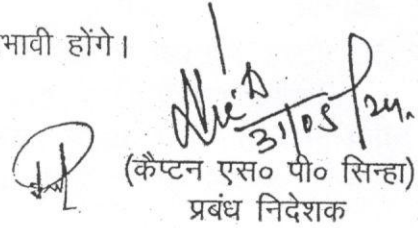 भावी होंगे।
31/05/24.
(कैप्टन एस० पी० सिन्हा)
प्रबंध निदेशक